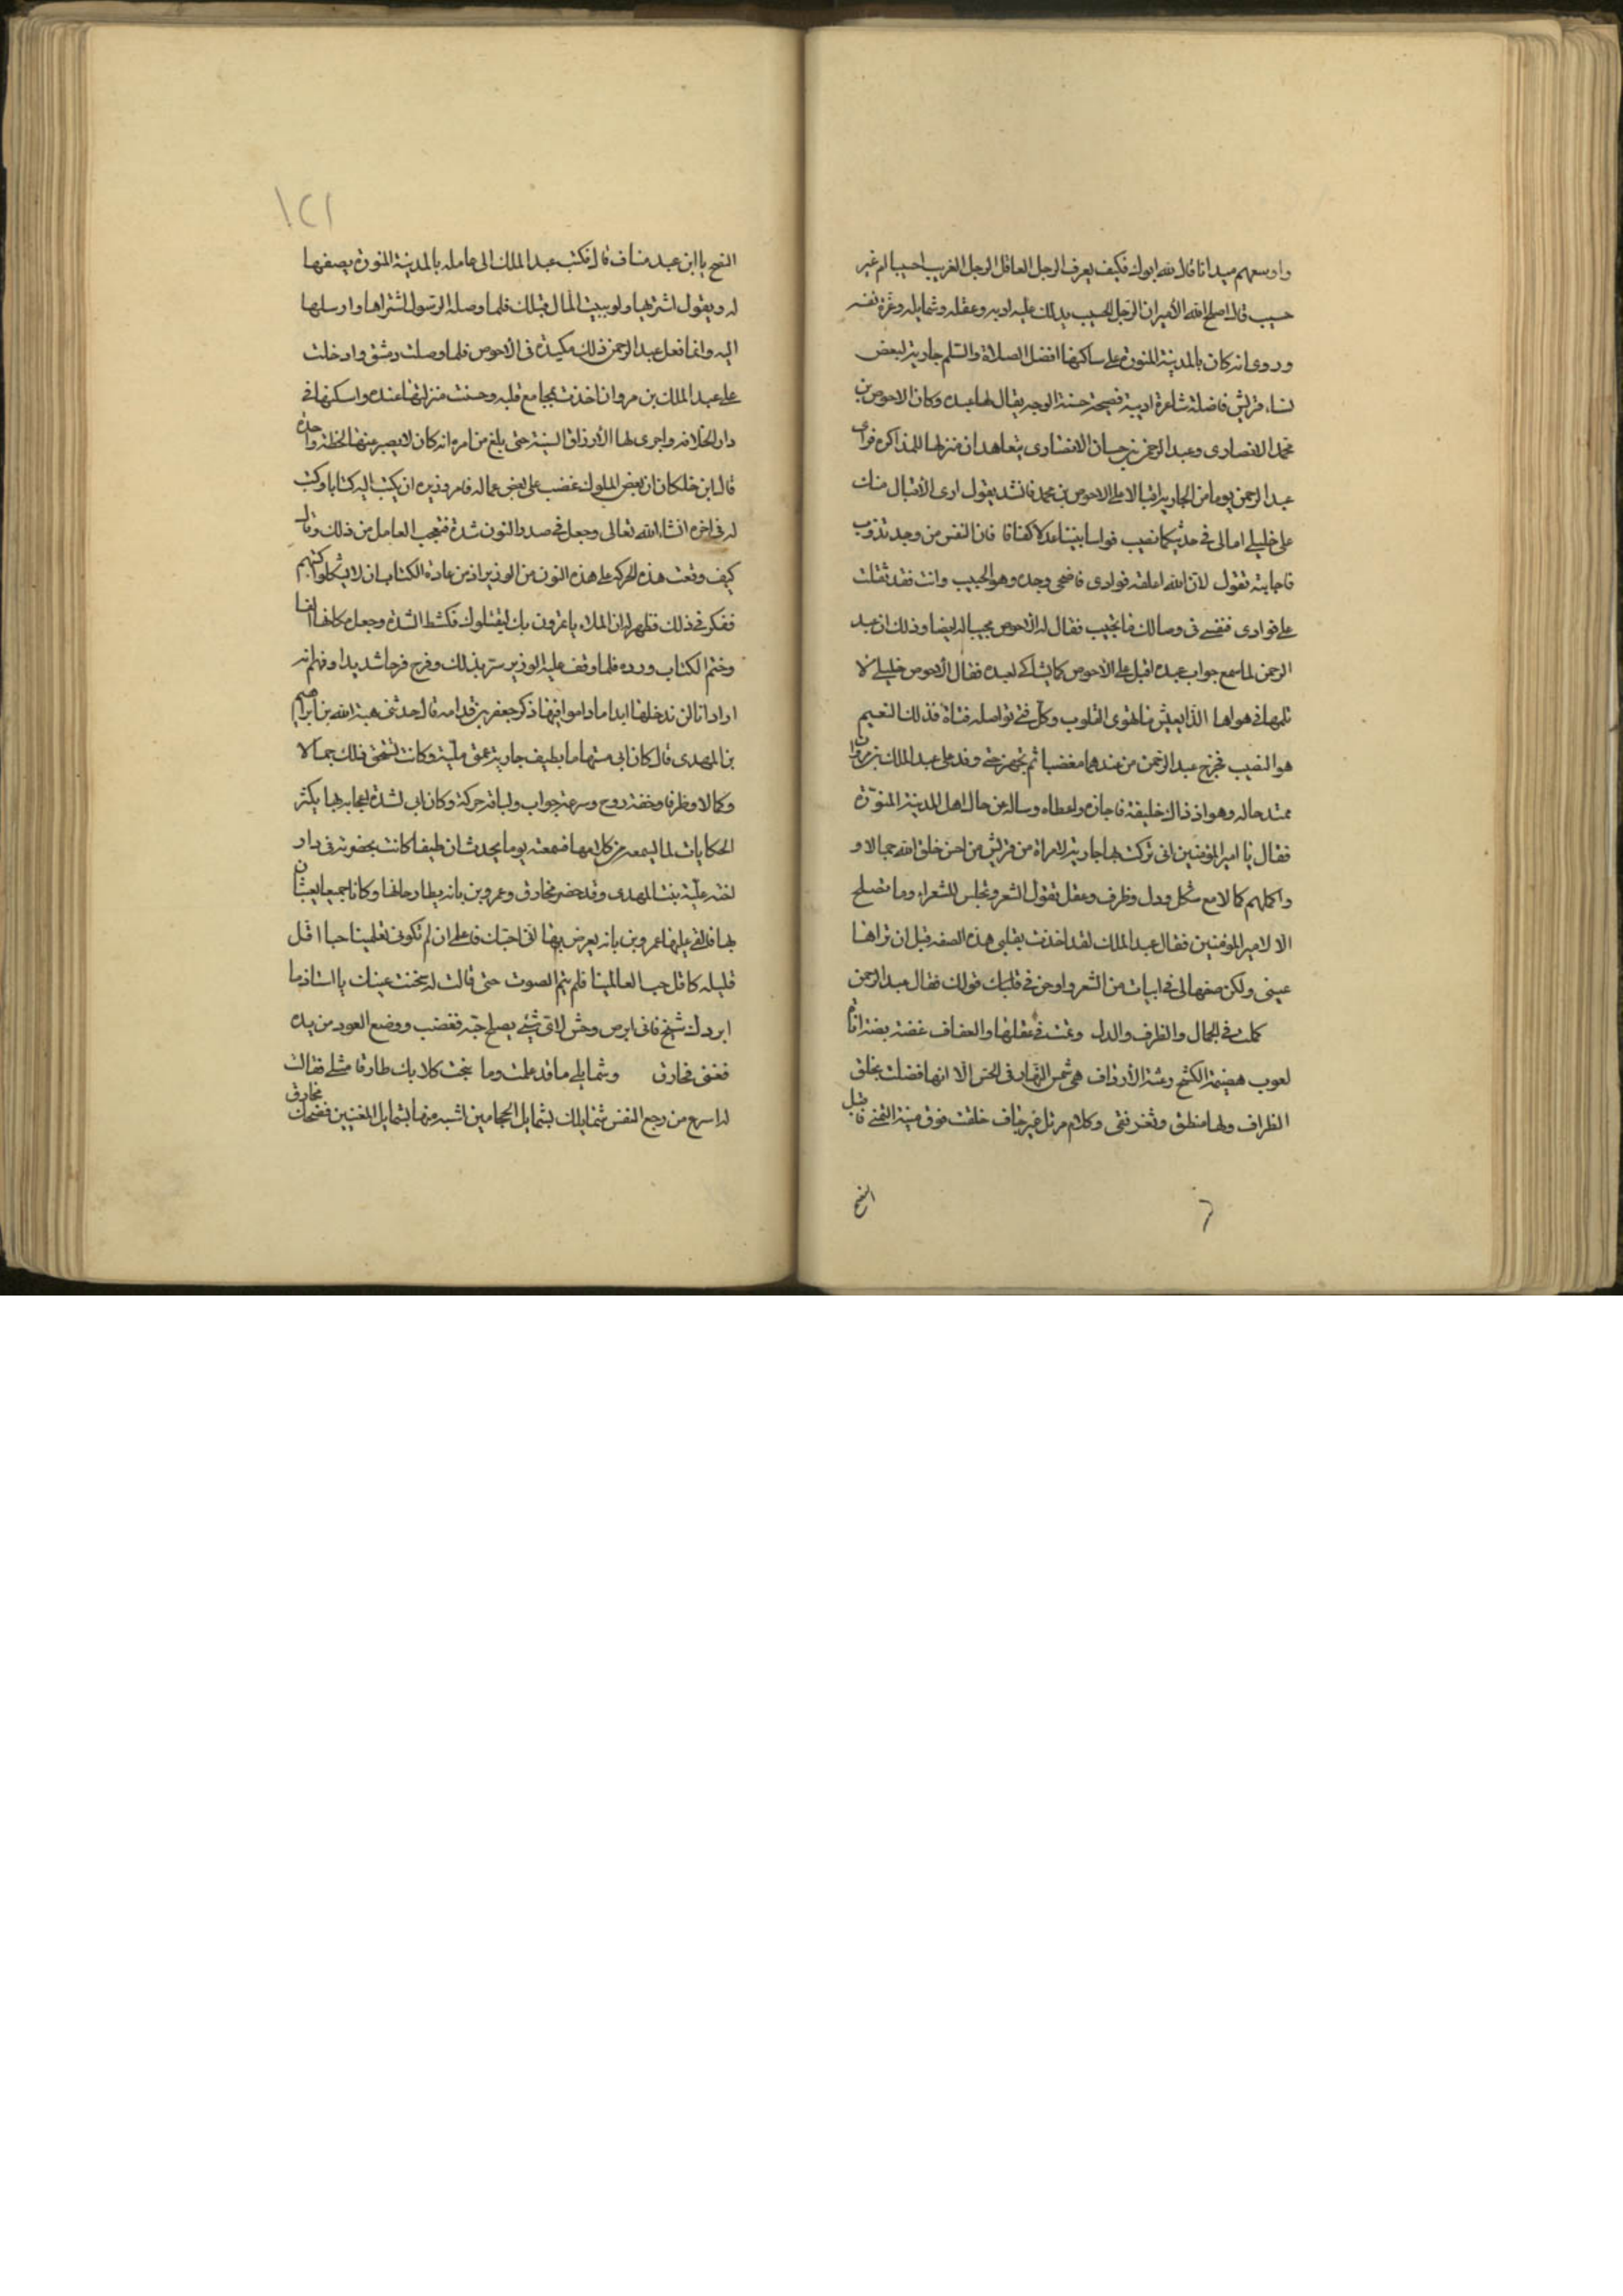 واوسعهم ميدانا قال لله ابوك فكيف يعرف الرجل العاقل الرجل الغريب احسيبا ام غير
حسيب قال اصلح الله الأمير ان الرجل الحسيب يدلك عليه ادبه وعقله وشمايله وعزة نفسه
وروى انه كان بالمدينة المنورة على ساكنها افضل الصلاة والسلم جارية لبعض
نساء قريش فاضلة شاعرة اديبة فصيحة حسنة الوجه يقال لها عبده وكان الاحوص بن
محمد الانصارى وعبد الرحمن بن حسان الانصارى يتعاهدان منزلها للمذاكره فراى
عبد الرحمن يوما من الجارية اقبالا على الاحوص بن محمد فانشد يقول ارى الأقبال منك
على خليلى امالى فى حديثكما نصيب فواسا بيننا عدلا كفانا فان النفس من وجد تذوب
فاجابته تقول لان الله اعلقه فوادى فاضحى وحده وهو الحبيب وانت فقد ثقلت
على فوادى فنفسى فى وصالك ما تجيب فقال له الاحوص مجيبا له ايضا وذلك ان عبد
الرحمن لما سمع جواب عبده اقبل على الاحوص كما يشاكى لعبده فقال الأحوص خليلى لا
تلمها فى هواها الذ العيش ما تهوى القلوب وكل فتى تواصله فتاة فذلك النعيم
هو النصيب فخرج عبد الرحمن من عندهما مغضبا ثم تجهز حتى وفد على عبد الملك بن مروان
ممتدحا له وهو اذ ذاك خليفة فاجازه واعطاه وساله عن حال اهل المدينة المنوّرة
فقال يا امير المؤمنين انى تركت بها جارية لامراة من قريش من احسن خلق الله جمالا و
واكملهم كمالا مع شكل ودل وظرف وعقل تقول الشعر وتجلس للشعراء وما تصلح
الا لامير المؤمنين فقال عبد الملك لقد اخذت بقلبى هذه الصفه قبل ان تراها
عينى ولكن صفها لى فى ابيات من الشعر واوجز فى قلبك قولك فقال عبد الرحمن
كملت فى الجمال والظرف والدل وتمت فى عقلها والعفاف غضة بضة اناة
لعوب هضيمة الكشح وعثة الأرداف هى شمس النهار فى الحسن الا انها فضلت بخلق
الظراف ولها منطق وثغر نقى وكلام مرتل غير خاف خلقت فوق منية التمنى فاقبل
النصح
النصح يا ابن عبد مناف قال فكتب عبد الملك الى عامله بالمدينة المنورة يصفها
له ويقول اشتريها ولو ببيت المال قبلك فلما وصله الرسول اشتراها وارسلها
اليه وانما فعل عبد الرحمن ذلك مكيدة فى الأحوص فلما وصلت دمشق وادخلت
على عبد الملك بن مروان اخذت بمجامع قلبه وحسنت منزلتها عنده واسكنها فى
دار الخلافه واجرى لها الأرزاق السنية حتى بلغ من امره انه كان لا يصبر عنها لحظة واحدة
قال ابن خلكان ان بعض الملوك غضب على بعض عماله فامر وزيره ان يكتب اليه كتابا وكتب
له فى اخره انشاء الله تعالى وجعل فى صدر النون شدة فتعجب العامل من ذلك وقال
كيف وقعت هذه الحركه على هذه النون من الوزير اذ من عادة الكتاب ان لا يشكلوا كتبهم
ففكر فى ذلك فظهر له ان الملاء ياتمرون بك ليقتلوك فكشط الشدة وجعل مكانها الفا
وختم الكتاب ورده فلما وقف عليه الوزير سر بذلك وفرح فرحا شديدا وفهم انه
اراد انا لن ندخلها ابدا ما داموا فيها ذكر جعفر بن قدامه قال حدثنى هبة الله بن ابراهيم
بن المهدى قال كان ابى مستهاما بطيف جارية عمتى علية وكانت تستحق ذلك جمالا
وكمالا وظرفا وخفة روح وسرعة جواب ولباقة حركة وكان ابى لشدة اعجابه بها يكثر
الحكايات لما يسمعه من كلامها فسمعته يوما يحدث ان طيفا كانت بحضوته فى دار
اخته علية بنت المهدى وقد حضر مخارق وعمرو بن بانه يطارحانها وكانا جميعا يعبثان
بها فالقى عليها عمرو بن بانه يعرض بها انى احبك فاعلمى ان لم تكونى تعلمينا حبا اقل
قليله كاقل حب العالمينا فلم يتم الصوت حتى قالت له سخنت عينك يا استاذ ما
ابردك شيخ فانى ابرص وحش لاى شئ يصلح حبه فغضب ووضع العود من يده
فغنى مخارق وشمايلى ما قد علمت وما نبحت كلابك طارقا مثلى فقالت
له اسرع من رجع النفس شمايلك بشمايل الحجامين اشبه منها بشمايل المغنيين فضحك مخارق